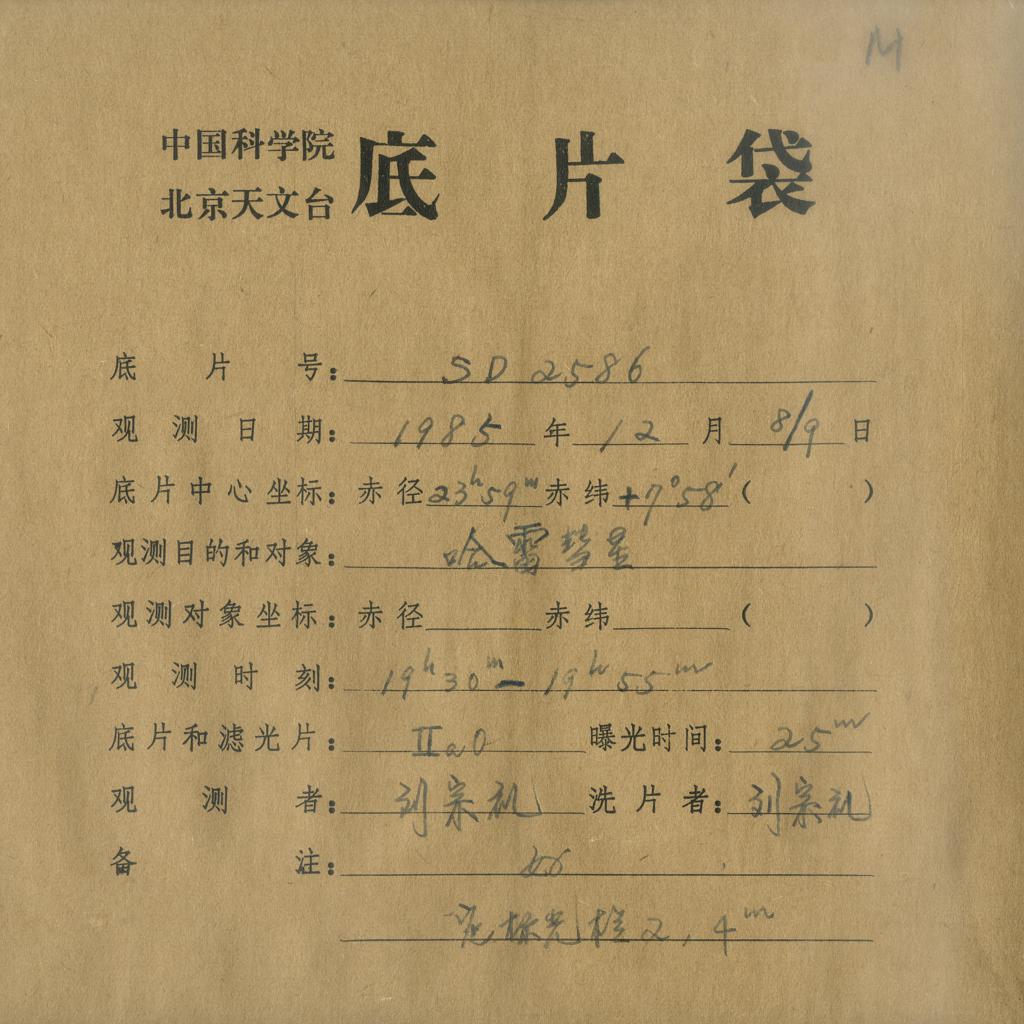 M
中国科学院
北京天文台
底片袋
底片号：SD 2586
观测日期：1985年12月8/9日
底片中心坐标：赤径23h59m赤纬+7°58′（ ）
观测目的和对象：哈雷彗星
观测对象坐标：赤径 赤纬 （ ）
观测时刻：19h30m－19h55m
底片和滤光片：IIaO 曝光时间：25m
观测者：刘宗礼 洗片者：刘宗礼
备注：
标光 2，4m